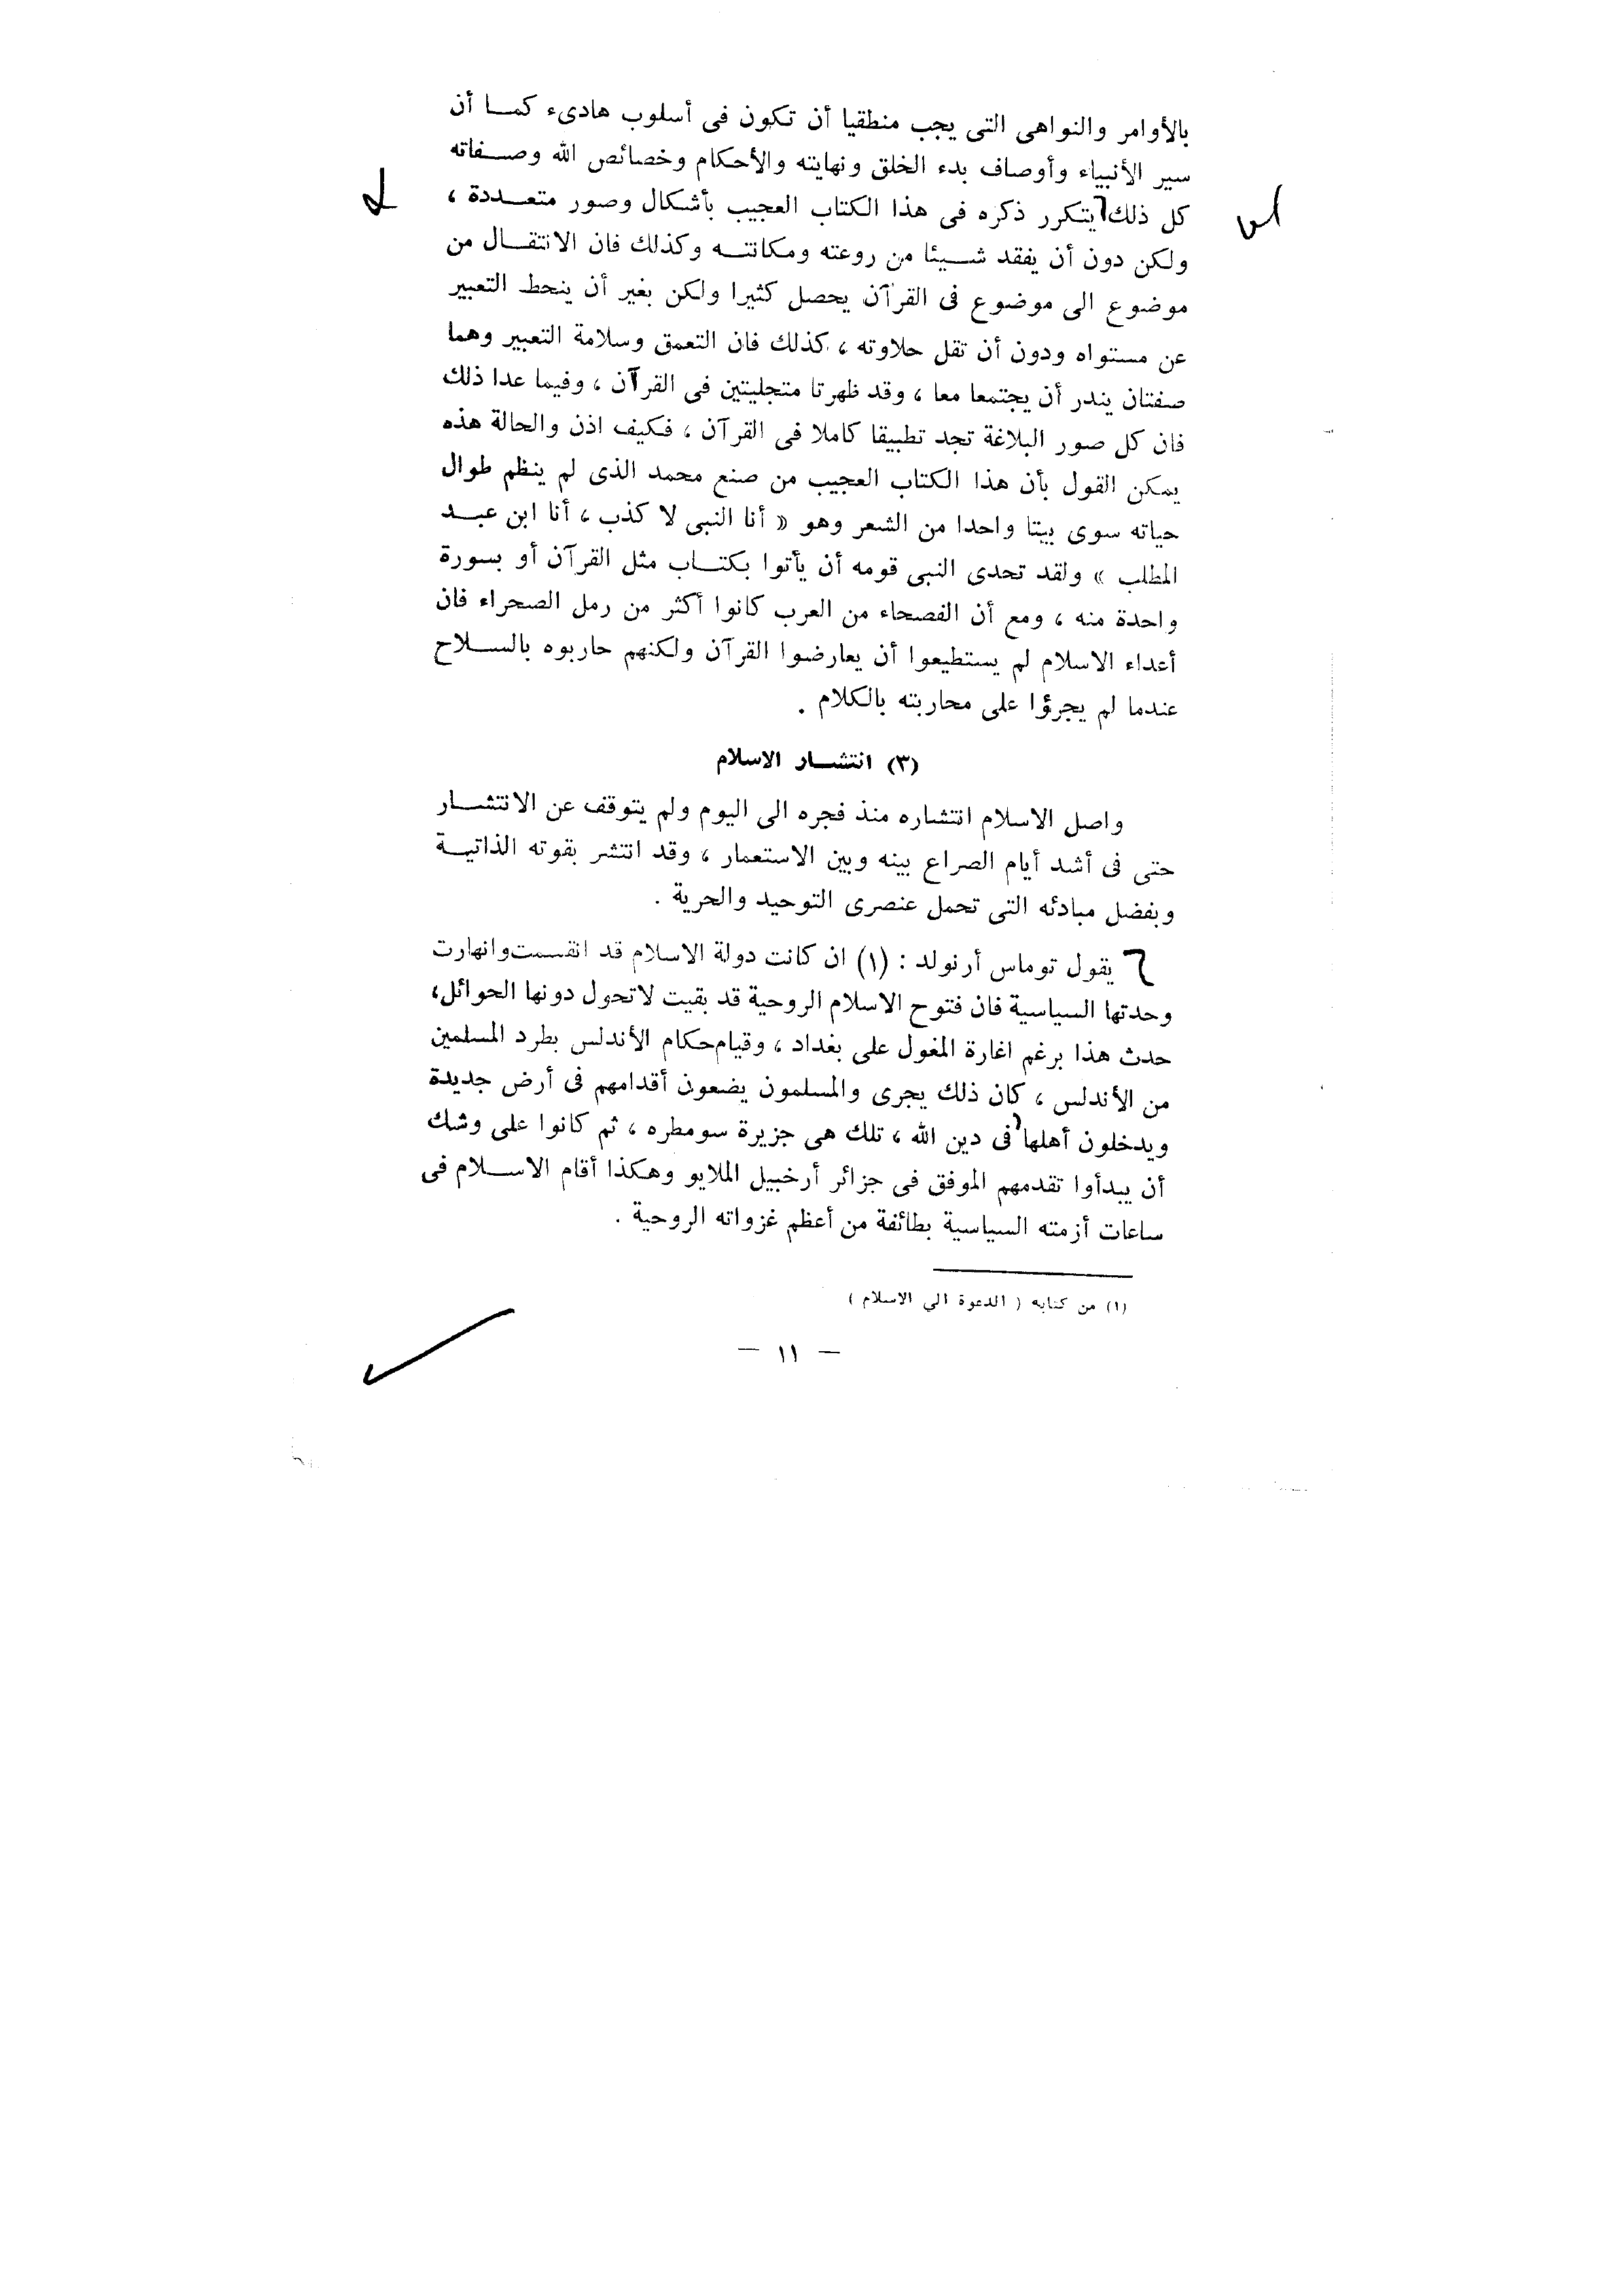 بالأوامر والنواهى التى يجب منطقيا أن تكون فى أسلوب هادىء كما أن
سير الأنبياء وأوصاف بدء الخلق ونهايته والأحكام وخصائص الله وصفاته
كل ذلك يتكرر ذكره فى هذا الكتاب العجيب بأشكال وصور متعددة ،
ولكن دون أن يفقد شيئا من روعته ومكانته وكذلك فان الانتقال من
موضوع الى موضوع فى القرآن يحصل كثيرا ولكن بغير أن ينحط التعبير
عن مستواه ودون أن تقل حلاوته ، كذلك فان التعمق وسلامة التعبير وهما
صفتان يندر أن يجتمعا معا ، وقد ظهرتا متجليتين فى القرآن ، وفيما عدا ذلك
فان كل صور البلاغة تجد تطبيقا كاملا فى القرآن ، فكيف اذن والحالة هذه
يمكن القول بأن هذا الكتاب العجيب من صنع محمد الذى لم ينظم طوال
حياته سوى بيتا واحدا من الشعر وهو « أنا النبى لا كذب ، أنا ابن عبد
المطلب » ولقد تحدى النبى قومه أن يأتوا بكتاب مثل القرآن أو بسورة
واحدة منه ، ومع أن الفصحاء من العرب كانوا أكثر من رمل الصحراء فان
أعداء الاسلام لم يستطيعوا أن يعارضوا القرآن ولكنهم حاربوه بالسلاح
عندما لم يجرؤا على محاربته بالكلام .
(٣) انتشار الاسلام
واصل الاسلام انتشاره منذ فجره الى اليوم ولم يتوقف عن الانتشار
حتى فى أشد أيام الصراع بينه وبين الاستعمار ، وقد انتشر بقوته الذاتية
وبفضل مبادئه التى تحمل عنصرى التوحيد والحرية .
يقول توماس أرنولد : (١) ان كانت دولة الاسلام قد انقسمت وانهارت
وحدتها السياسية فان فتوح الاسلام الروحية قد بقيت لاتحول دونها الحوائل،
حدث هذا برغم اغارة المغول على بغداد ، وقيام حكام الأندلس بطرد المسلمين
من الأندلس ، كان ذلك يجرى والمسلمون يضعون أقدامهم فى أرض جديدة
ويدخلون أهلها فى دين الله ، تلك هى جزيرة سومطره ، ثم كانوا على وشك
أن يبدأوا تقدمهم الموفق فى جزائر أرخبيل الملايو وهكذا أقام الاسلام فى
ساعات أزمته السياسية بطائفة من أعظم غزواته الروحية .
(١) من كتابه ( الدعوة الى الاسلام )
— ١١ —